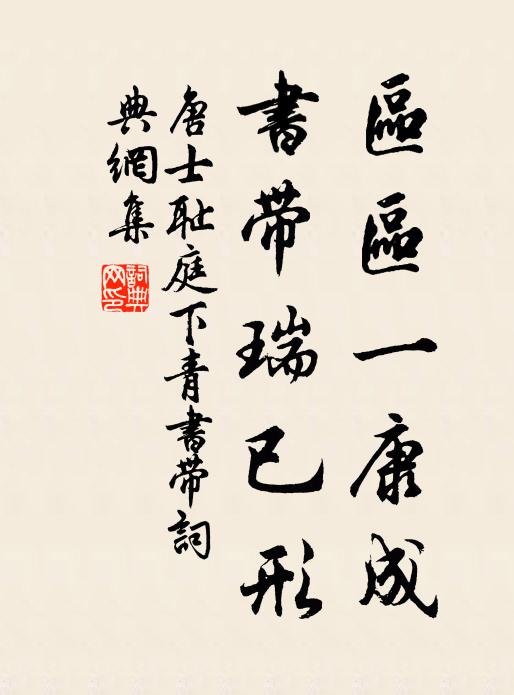 區區一康成
書帶瑞已形
唐士耻庭下青書帶詞
典網集
詞典
网印